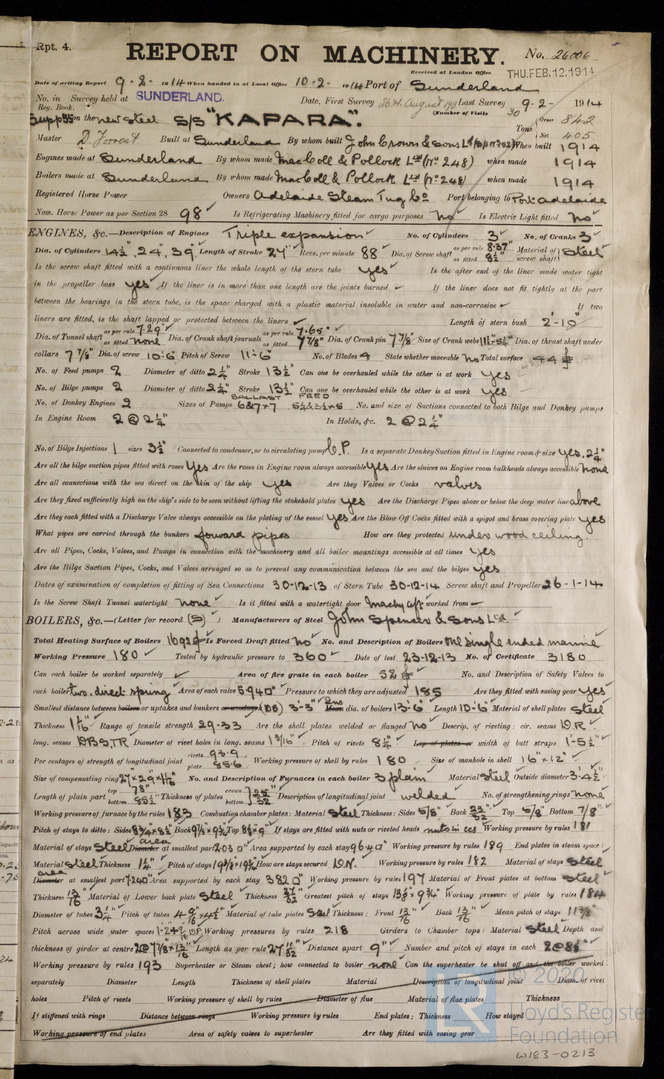 Rpt. 4.
REPORT ON MACHINERY.
No. 26006
Received at London Office
THU. FEB. 12. 1914
Date of writing Report 9-2-1914 When handed in at Local Office 10-2-1914 Port of Sunderland
No. in Survey held at SUNDERLAND. Date, First Survey 26th August 1913 Last Survey 9-2-1914
Reg. Book. (Number of Visits 30
on the new steel S/S "KAPARA." Tons Gross 842 Net 405
Master D. Forrest Built at Sunderland By whom built John Crown & Sons Ld When built 1914
Engines made at Sunderland By whom made MacColl & Pollock Ltd (No 248) when made 1914
Boilers made at Sunderland By whom made MacColl & Pollock Ltd (No 248) when made 1914
Registered Horse Power Owners Adelaide Steam Tug Co Port belonging to Port Adelaide
Nom. Horse Power as per Section 28 98 Is Refrigerating Machinery fitted for cargo purposes No Is Electric Light fitted No
ENGINES, &c.—Description of Engines Triple expansion No. of Cylinders 3 No. of Cranks 3
Dia. of Cylinders 14½", 24", 39" Length of Stroke 27" Revs. per minute 88 Dia. of Screw shaft as per rule 8.37" as fitted 8½" Material of screw shaft Steel
Is the screw shaft fitted with a continuous liner the whole length of the stern tube yes Is the after end of the liner made water tight
in the propeller boss yes If the liner is in more than one length are the joints burned If the liner does not fit tightly at the part
between the bearings in the stern tube, is the space charged with a plastic material insoluble in water and non-corrosive If two
liners are fitted, is the shaft lapped or protected between the liners Length of stern bush 2'-10"
Dia. of Tunnel shaft as per rule 7.29" as fitted none Dia. of Crank shaft journals as per rule 7.65" as fitted 7⅞" Dia. of Crank pin 7⅞" Size of Crank webs Dia. of thrust shaft under
collars 7⅞" Dia. of screw 10-6 Pitch of Screw 11-6 No. of Blades 4 State whether moveable No Total surface 44
No. of Feed pumps 2 Diameter of ditto 2¼" Stroke 13½" Can one be overhauled while the other is at work yes
No. of Bilge pumps 2 Diameter of ditto 2¼" Stroke 13½" Can one be overhauled while the other is at work yes
No. of Donkey Engines 2 Sizes of Pumps BALLAST 6&7×7 FEED No. and size of Suctions connected to both Bilge and Donkey pumps
In Engine Room 2 @ 2¼" In Holds, &c. 2 @ 2¼"
No. of Bilge Injections 1 sizes 3½" Connected to condenser, or to circulating pump C.P. Is a separate Donkey Suction fitted in Engine room & size yes, 2¼"
Are all the bilge suction pipes fitted with roses Yes Are the roses in Engine room always accessible Yes Are the sluices on Engine room bulkheads always accessible none
Are all connections with the sea direct on the skin of the ship yes Are they Valves or Cocks valves
Are they fixed sufficiently high on the ship's side to be seen without lifting the stokehold plates yes Are the Discharge Pipes above or below the deep water line above
Are they each fitted with a Discharge Valve always accessible on the plating of the vessel yes Are the Blow Off Cocks fitted with a spigot and brass covering plate yes
What pipes are carried through the bunkers forward pipes How are they protected under wood ceiling
Are all Pipes, Cocks, Valves, and Pumps in connection with the machinery and all boiler mountings accessible at all times yes
Are the Bilge Suction Pipes, Cocks, and Valves arranged so as to prevent any communication between the sea and the bilges yes
Dates of examination of completion of fitting of Sea Connections 30-12-13 of Stern Tube 30-12-14 Screw shaft and Propeller 26-1-14
Is the Screw Shaft Tunnel watertight none Is it fitted with a watertight door Machy aft worked from
BOILERS, &c.—(Letter for record (S)) Manufacturers of Steel John Spencer & Sons Ltd
Total Heating Surface of Boilers 1692 Is Forced Draft fitted no No. and Description of Boilers One single ended marine
Working Pressure 180 Tested by hydraulic pressure to 360 Date of test 23-12-13 No. of Certificate 3180
Can each boiler be worked separately Area of fire grate in each boiler 52 No. and Description of Safety Valves to
each boiler two. direct spring Area of each valve 5.940" Pressure to which they are adjusted 185 Are they fitted with easing gear yes
Smallest distance between boilers or uptakes and bunkers dia. of boilers 13-6 Length 10-6 Material of shell plates Steel
Thickness Range of tensile strength 29.33 Are the shell plates welded or flanged no Descrip. of riveting: cir. seams D.R.
long. seams DBS, TR Diameter of rivet holes in long. seams 1 3/16" Pitch of rivets 8¼" Lap of plates or width of butt straps 1-5½"
Per centages of strength of longitudinal joint rivets 93.9 plate 85.6 Working pressure of shell by rules 180 Size of manhole in shell 16"×12"
Size of compensating ring No. and Description of Furnaces in each boiler 3 plain Material Steel Outside diameter 3-4½"
Length of plain part top 78" bottom Thickness of plates crown bottom Description of longitudinal joint welded No. of strengthening rings none
Working pressure of furnace by the rules 183 Combustion chamber plates: Material Steel Thickness: Sides 5/8" Back Top 5/8" Bottom 7/8"
Pitch of stays to ditto: Sides Back Top If stays are fitted with nuts or riveted heads nuts Working pressure by rules 181
Material of stays Steel Diameter at smallest part Area supported by each stay Working pressure by rules 189 End plates in steam space:
Material Steel Thickness Pitch of stays How are stays secured D.N. Working pressure by rules 182 Material of stays Steel
Diameter at smallest part Area supported by each stay Working pressure by rules 197 Material of Front plates at bottom Steel
Thickness 13/16 Material of Lower back plate Steel Thickness Greatest pitch of stays Working pressure of plate by rules 184
Diameter of tubes 3¼" Pitch of tubes Material of tube plates Steel Thickness: Front 13/16 Back Mean pitch of stays
Pitch across wide water spaces Working pressures by rules 218 Girders to Chamber tops: Material Steel Depth and
thickness of girder at centre Length as per rule Distance apart 9" Number and pitch of stays in each
Working pressure by rules 193 Superheater or Steam chest; how connected to boiler none Can the superheater be shut off and the boiler worked
separately Diameter Length Thickness of shell plates Material Description of longitudinal joint Diam. of rivet
holes Pitch of rivets Working pressure of shell by rules Diameter of flue Material of flue plates Thickness
If stiffened with rings Distance between rings Working pressure by rules End plates; Thickness How stayed
Working pressure of end plates Area of safety valves to superheater Are they fitted with easing gear
© 2020
Lloyd's Register
Foundation
W183-0213